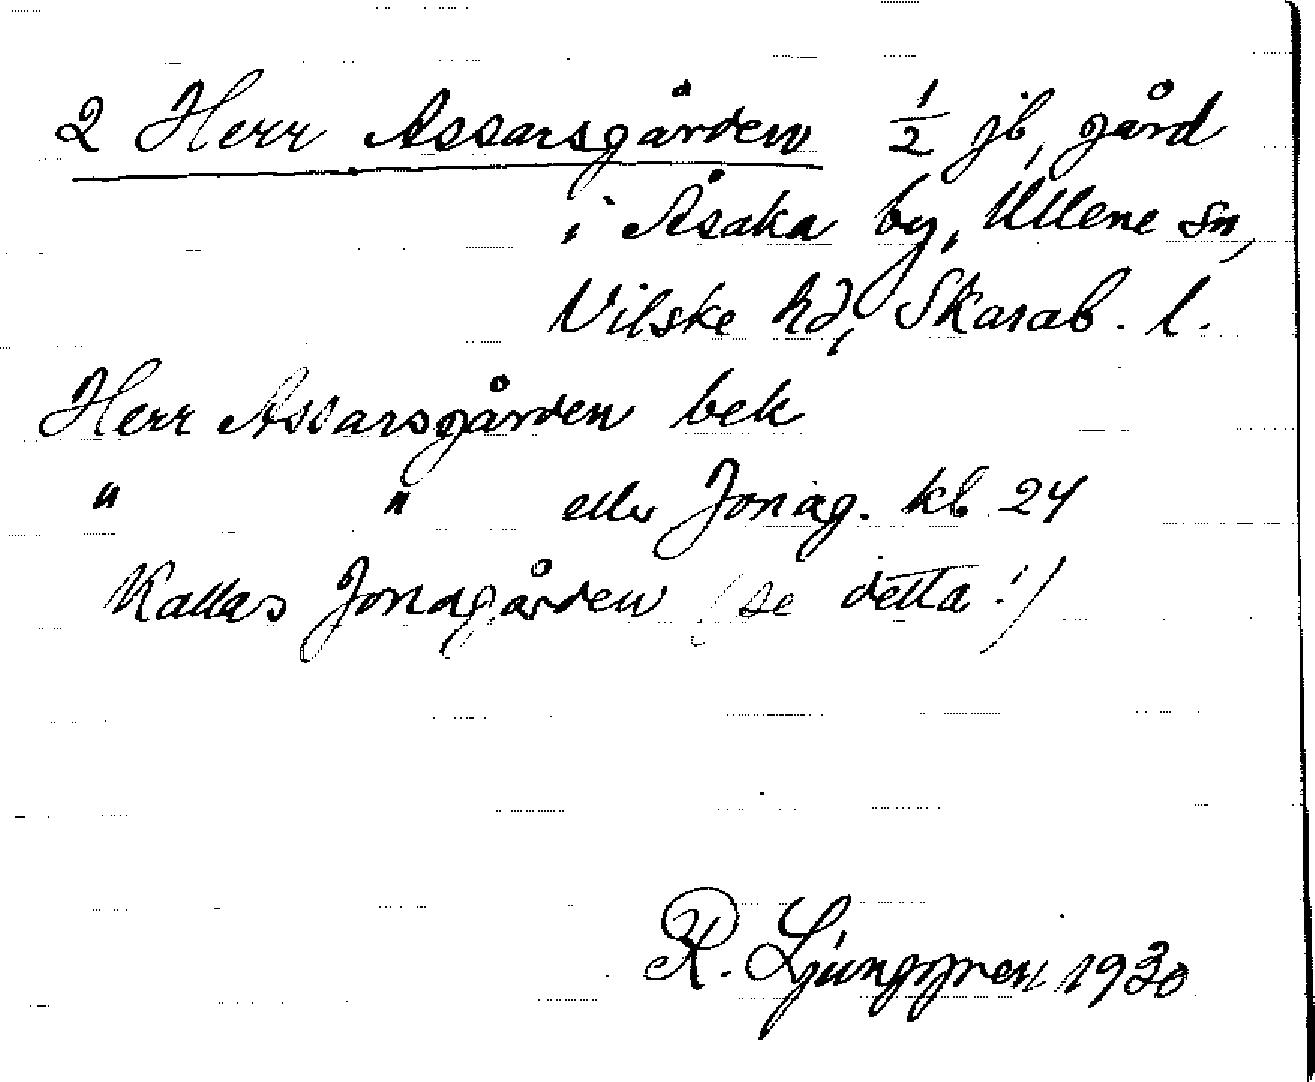 2 Herr Assarsgården ½ jb, gård
i Åsaka by, Ullene sn,
Vilske hd, Skarab. l.
Herr Assarsgården bek
" " eller Jonag. kb 24
Kallas Jonagården (se detta!)
R. Ljunggren 1930